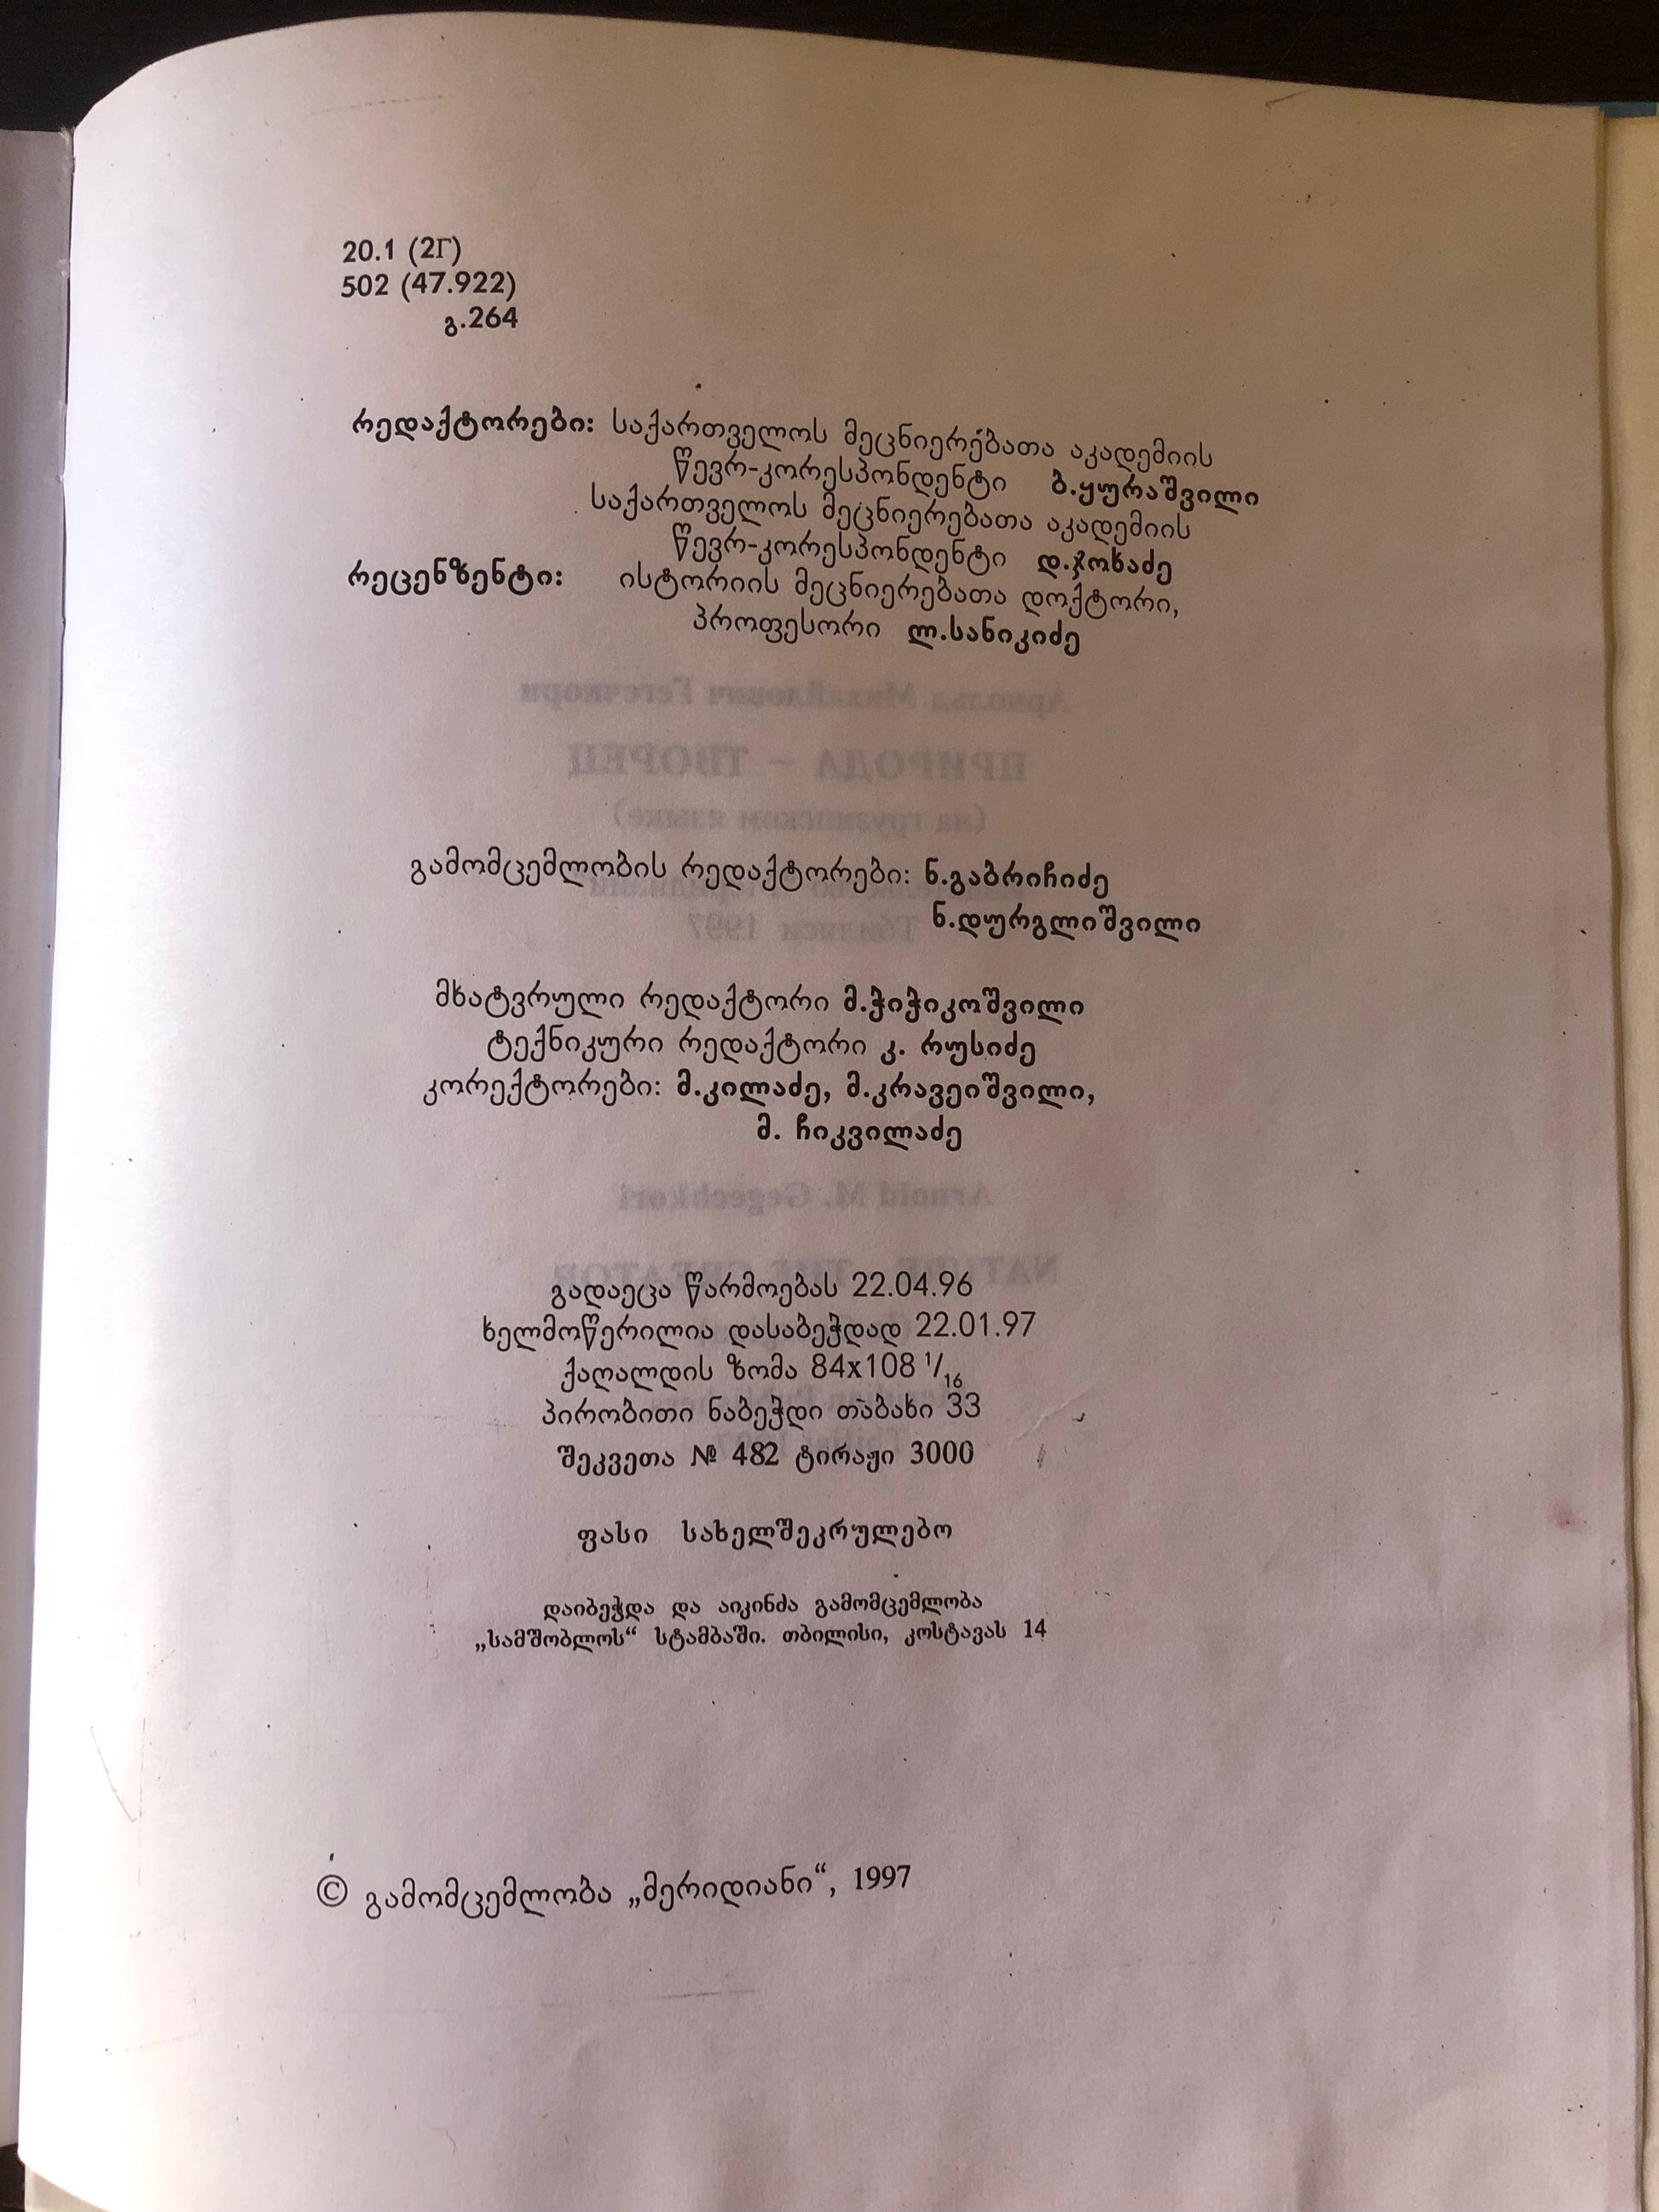 20.1 (2Г)
502 (47.922)
გ.264
რედაქტორები: საქართველოს მეცნიერებათა აკადემიის
წევრ-კორესპონდენტი ბ.ყურაშვილი
საქართველოს მეცნიერებათა აკადემიის
წევრ-კორესპონდენტი დ.ჯოხაძე
რეცენზენტი: ისტორიის მეცნიერებათა დოქტორი,
პროფესორი ლ.სანიკიძე
Арнольд Михайлович Гегечкори
ПРИРОДА – ТВОРЕЦ
(на грузинском языке)
გამომცემლობის რედაქტორები: ნ.გაბრიჩიძე
Тбилиси 1997
ნ.დურგლიშვილი
მხატვრული რედაქტორი მ.ჭიჭიკოშვილი
ტექნიკური რედაქტორი კ. რუსიძე
კორექტორები: მ.კილაძე, მ.კრავეიშვილი,
მ. ჩიკვილაძე
Arnold M. Gegechkori
გადაეცა წარმოებას 22.04.96
ხელმოწერილია დასაბეჭდად 22.01.97
ქაღალდის ზომა 84x108 1/16
პირობითი ნაბეჭდი თაბახი 33
შეკვეთა № 482 ტირაჟი 3000
ფასი სახელშეკრულებო
დაიბეჭდა და აიკინძა გამომცემლობა
„სამშობლოს“ სტამბაში. თბილისი, კოსტავას 14
© გამომცემლობა „მერიდიანი“, 1997